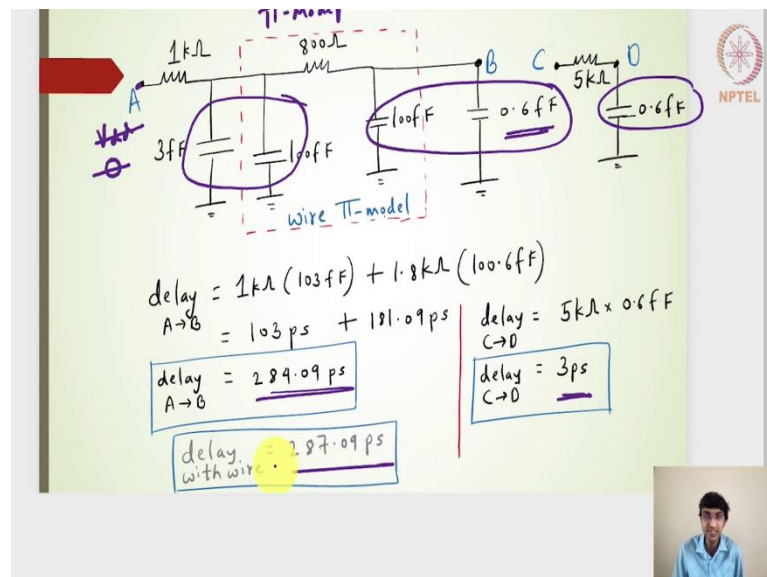 π-model
1kΩ
800Ω
B
C
D
5kΩ
A
NPTEL
Vdd
0
3fF
100fF
100fF
0.6fF
0.6fF
wire π-model
delay A→B = 1kΩ (103fF) + 1.8kΩ (100.6fF)
= 103ps + 181.09ps
delay A→B = 284.09 ps
delay C→D = 5kΩ x 0.6fF
delay C→D = 3ps
delay with wire = 287.09ps